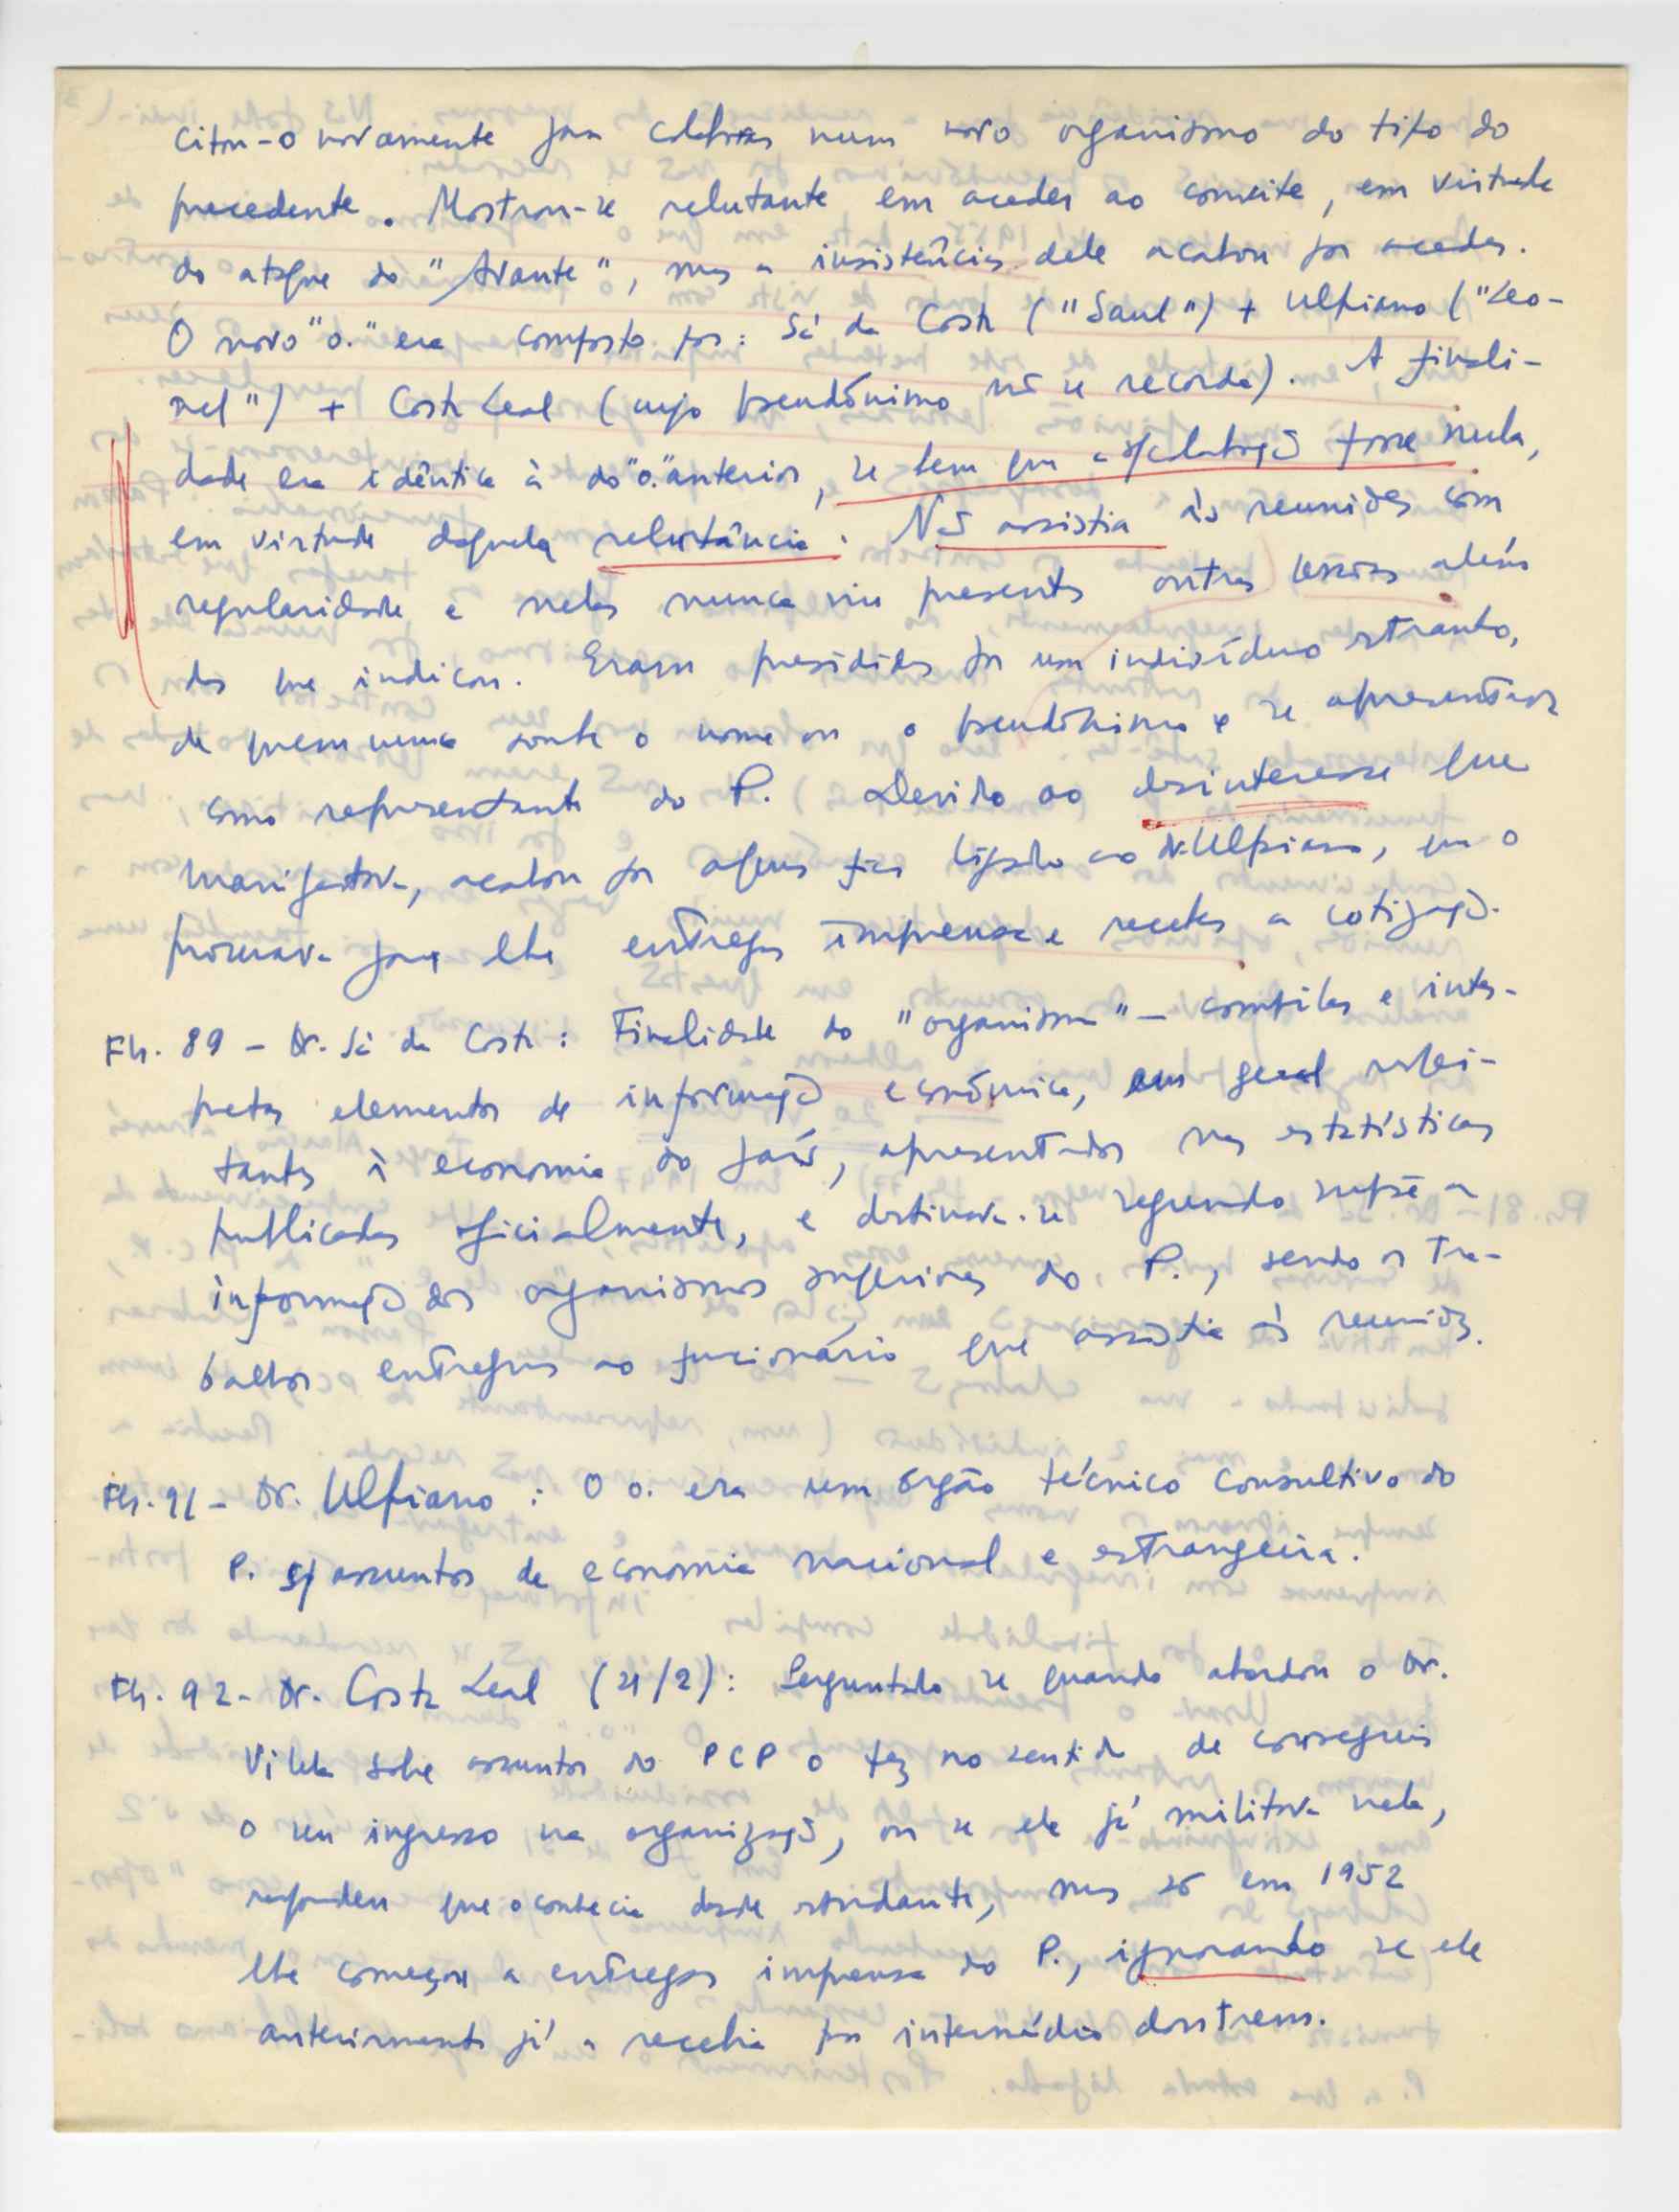 citou-o novamente para colaborar num novo organismo do tipo do
precedente. Mostrou-se relutante em aceder ao convite, em virtude
do ataque do "Avante", mas a insistências dele acabou por aceder.
O novo "o." era composto por: Sá da Costa ("Saul") + Ulpiano ("Leo-
nel") + Costa Leal (cujo pseudónimo nã se recorda). A finali-
dade era idêntica à do "o." anterior, se bem que a s/ colaboraçã fosse nula,
em virtude daquela relutância. Nã assistia às reuniões com
regularidade e nelas nunca viu presentes outras pessoas além
das que indicou. Eram presididas por um indivíduo estranho,
de quem nunca soube o nome ou o pseudónimo e se apresentava
como representante do P. Devido ao desinteresse que
manifestava, acabou por apenas ficar ligado ao Dr. Ulpiano, que o
procurava para lhe entregar imprensa e receber a cotizaçã.
Fls. 89 - Dr. Sá da Costa: Finalidade do "organismo" - compilar e inter-
pretar elementos de informaçã económica, em geral respei-
tantes à economia do país, apresentados nas estatísticas
publicadas oficialmente, e destinava-se segundo supõe a
informaçã dos organismos superiores do P., sendo os tra-
balhos entregues ao funcionário que assistia às reuniões.
Fls. 91 - Dr. Ulpiano: O o. era um órgão técnico consultivo do
P. s/ assuntos de economia nacional e estrangeira.
Fls. 92 - Dr. Costa Leal (21/2): Perguntado se quando abordou o Dr.
Vilela sobre assuntos do PCP o fez no sentido de conseguir
o seu ingresso na organizaçã, ou se ele já militava nela,
respondeu que o conhecia desde estudante, mas só em 1952
lhe começou a entregar imprensa do P., ignorando se ele
anteriormente já a recebia por intermédio doutrem.